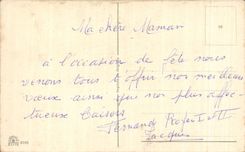 Ma chère Maman
à l'occasion de fête nous
venons tous t'offrir nos meilleurs
vœux ainsi que nos plus affec-
tueux baisers
Fernande
Jacques